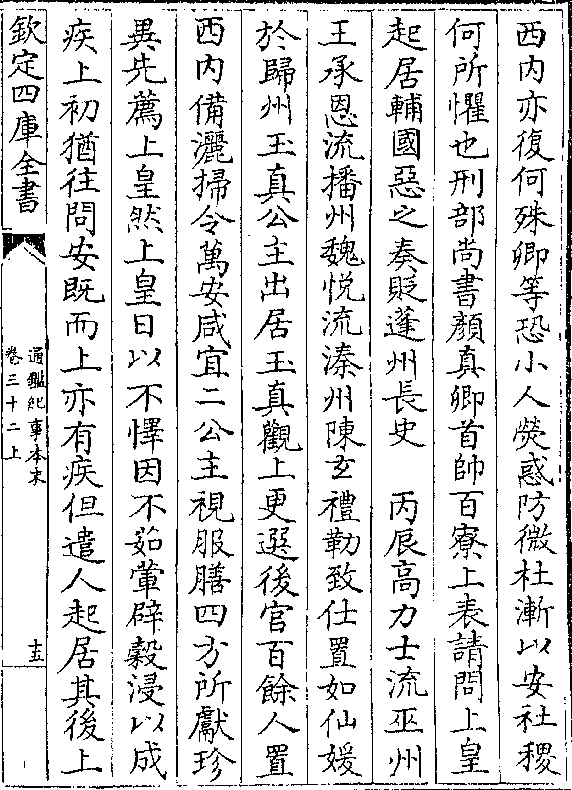 西内亦復何殊卿等恐小人熒惑防微杜漸以安社稷
何所懼也刑部尚書顔真卿首帥百寮上表請問上皇
起居輔國惡之奏貶蓬州長史　丙辰高力士流巫州
王承恩流播州魏悦流溱州陳玄禮勒致仕置如仙媛
於歸州玉真公主出居玉真觀上更選後宫百餘人置
西内備灑掃令萬安咸宜二公主視服膳四方所獻珍
異先薦上皇然上皇日以不懌因不茹葷辟穀浸以成
疾上初猶往問安既而上亦有疾但遣人起居其後上
欽定四庫全書
通鑑紀事本末
卷三十二上
十五